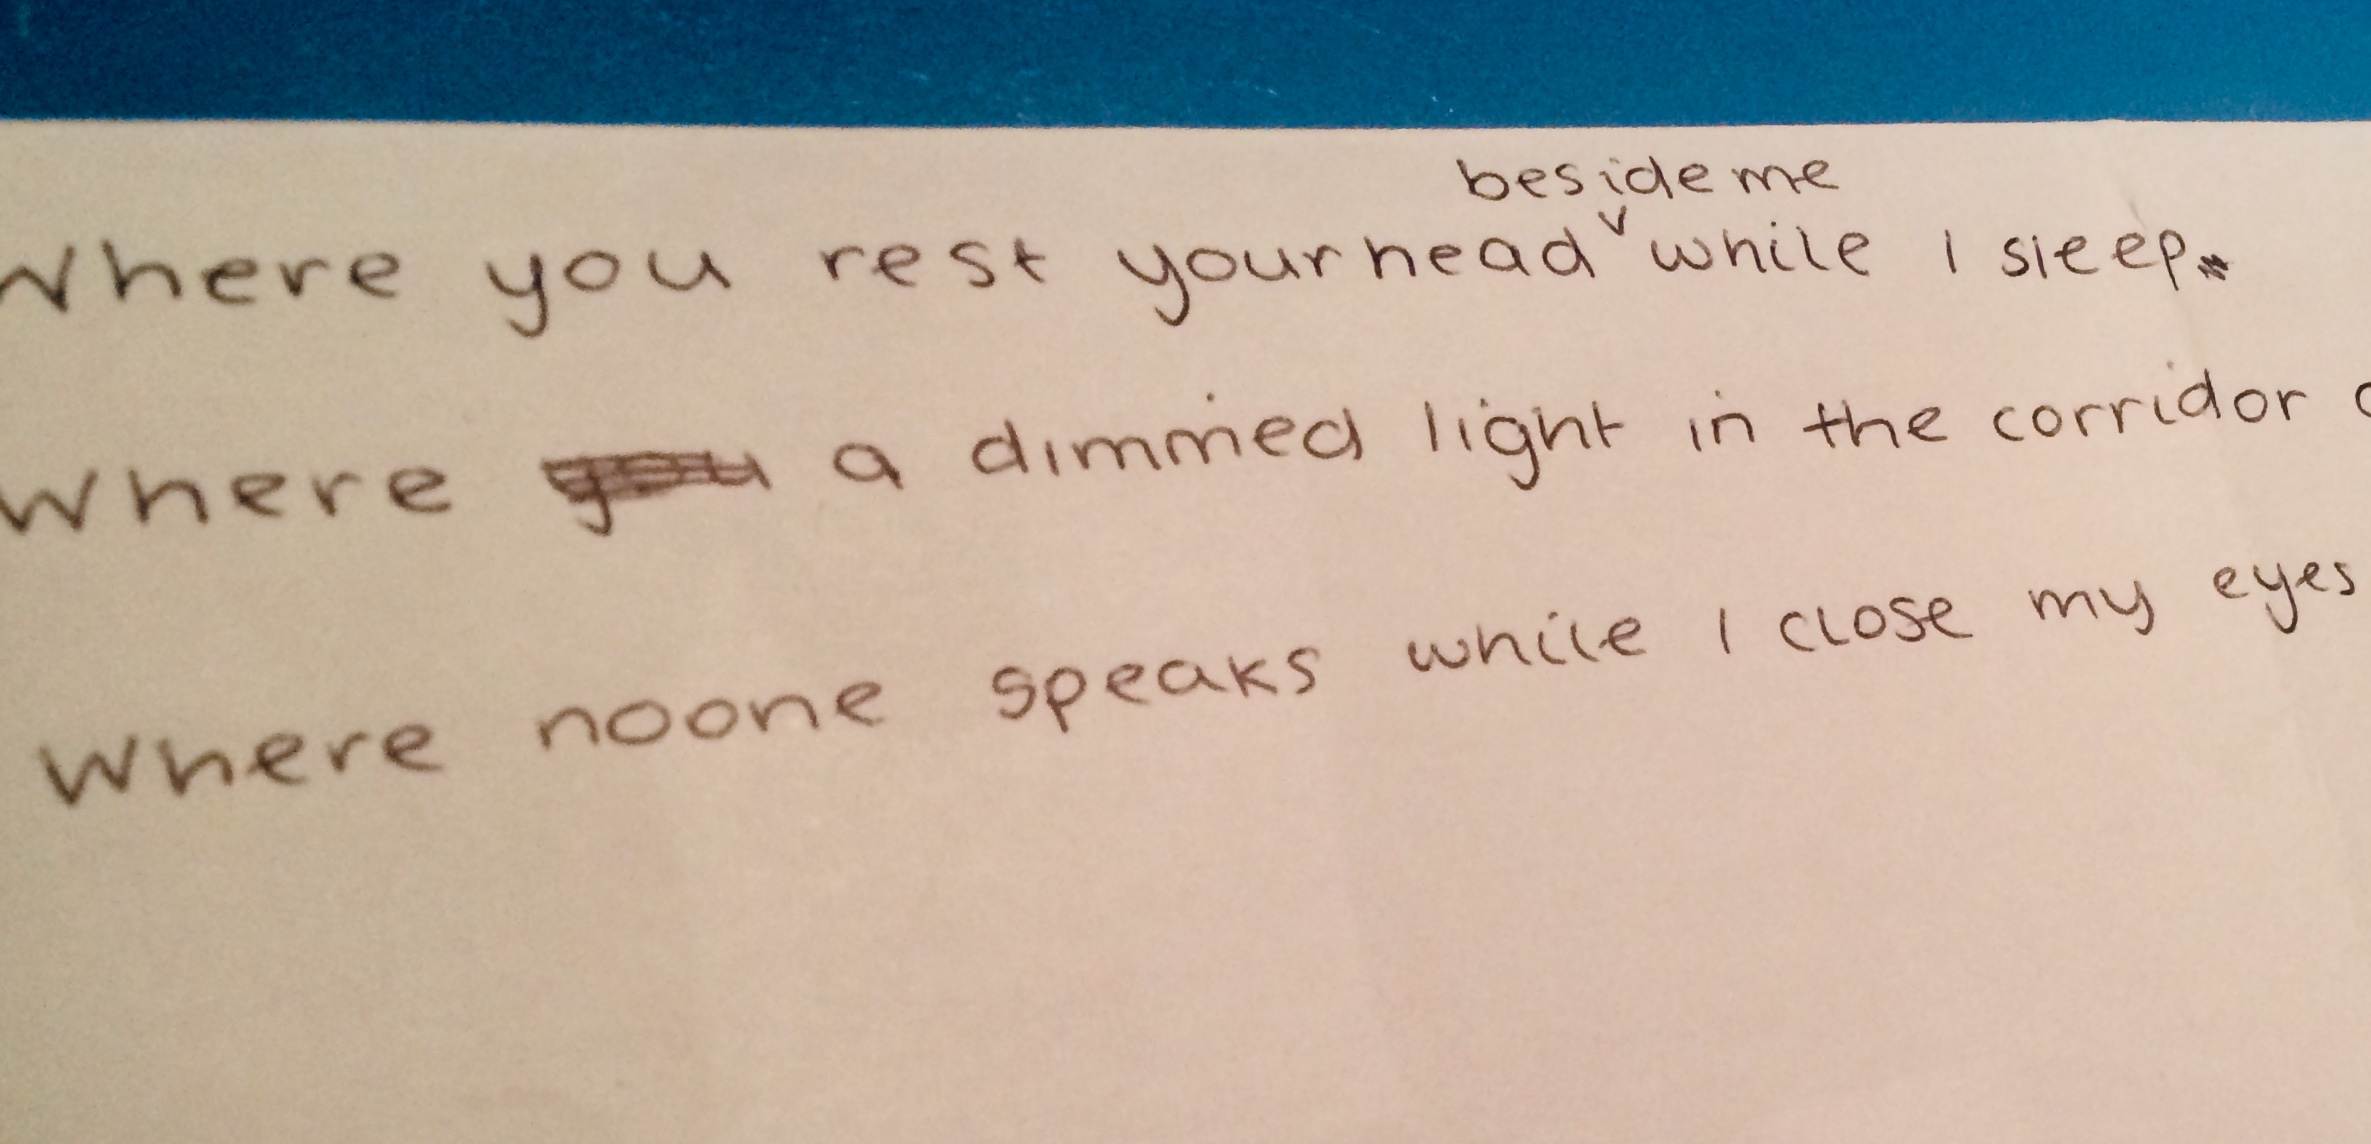 beside me
Where you rest your head while I sleep.
Where a dimmed light in the corridor
Where noone speaks while I close my eyes